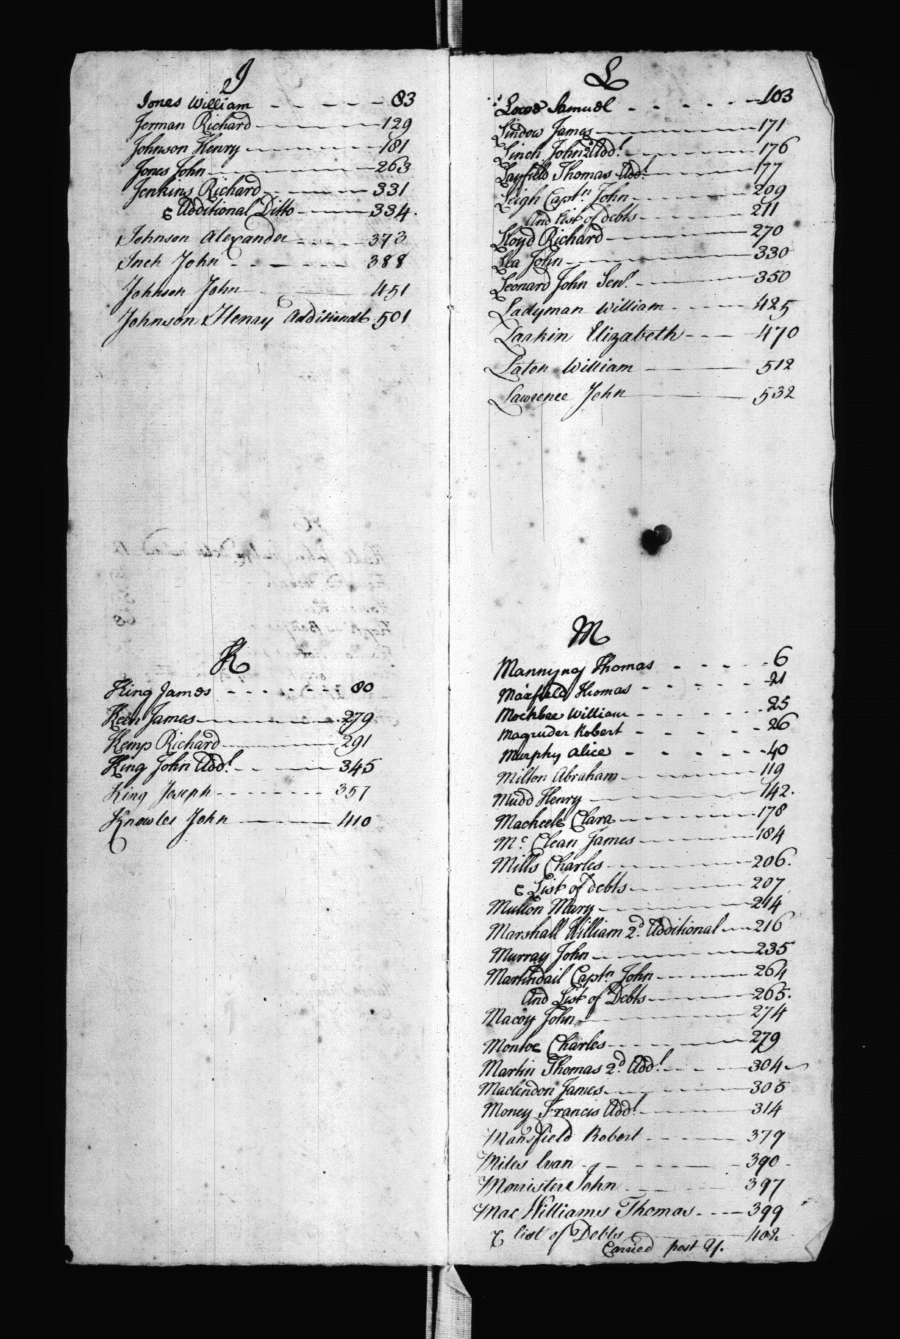 J
Jones William 83
Jerman Richard 129
Johnson Henry 181
Jones John 263
Jenkins Richard 331
& Additional Ditto 334.
Johnson Alexander 373
Inch John 388
Johnson John 451
Johnson Henry Additional 501
K
King James 80
Keen James 279
Kemp Richard 291
King John Addl. 345
King Joseph 357
Knowles John 410
L
Samuel 103
Lindow James 171
Linch John 2d Addl. 176
Layfield Thomas Addl. 177
Leigh Captn. John 209
And List of debts 211
Lloyd Richard 270
Lea John 330
Leonard John Senr. 350
Ladyman William 425
Larkin Elizabeth 470
Laton William 512
Lawrence John 532
M
Thomas 6
Maxfield Thomas 21
Mockbee William 25
Magruder Robert 26
Murphy Alice 40
Milton Abraham 119
Mudd Henry 142.
Clara 178
Mc. Clean James 184
Mills Charles 206.
& List of Debts 207
Mullon Mary 214
Marshall William 2d. Additional 216
Murray John 235
Martindail Captn John 264
And List of Debts 265.
Macoy John 274
Monroe Charles 279
Martin Thomas 2d. Addl. 304
Maclendon James 305
Money Francis Addl. 314
Mansfield Robert 379
Miles Evan 390
John 397
Mac Williams Thomas 399
& list of Debts 402
Carried post